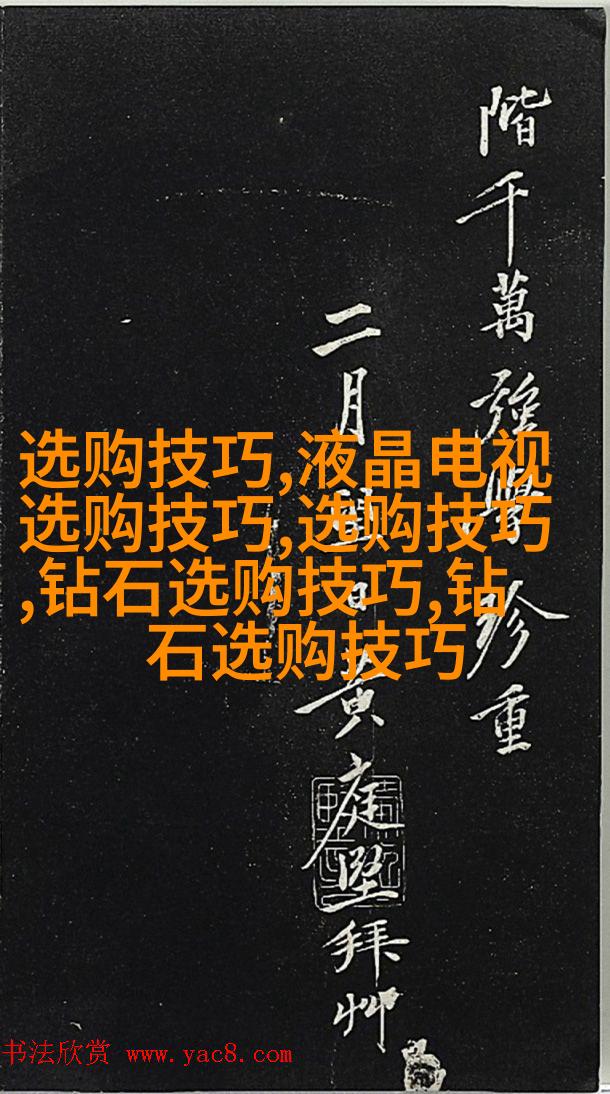 階千萬強珍重
二月黄庭堅拜艸
选购技巧,液晶电视
选购技巧,选购技巧
,钻石选购技巧,钻
石选购技巧
书法欣赏 www.yac8.com